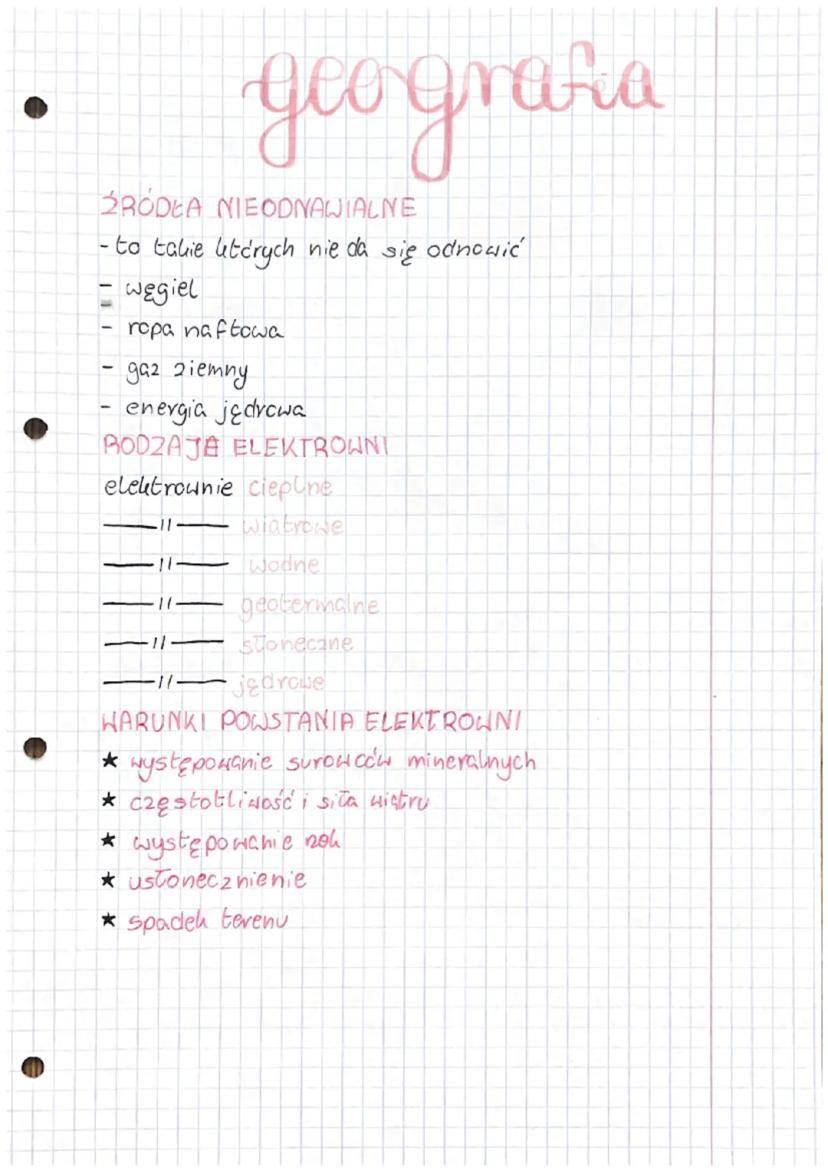 geografia
ŹRÓDŁA NIEODNAWIALNE
- to takie których nie da się odnowić
- węgiel
- ropa naftowa
- gaz ziemny
- energia jędrowa
RODZAJE ELEKTROWNI
elektrownie cieplne
—— 11 —— wiatrowe
—— 11 —— wodne
—— 11 —— geotermalne
—— 11 —— słoneczne
—— 11 —— jędrowe
WARUNKI POWSTANIA ELEKTROWNI
★ występowanie surowców mineralnych
★ częstotliwość i siła wiatru
★ występowanie rzek
★ usłonecznienie
★ spadek terenu